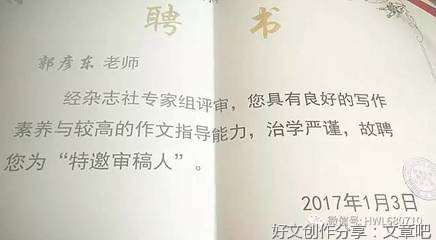 聘 书
郭彦东老师
经杂志社专家组评审，您具有良好的写作
素养与较高的作文指导能力，治学严谨，故聘
您为“特邀审稿人”。
2017年1月3日
微信号: HWL680710
好文创作分享：文章吧